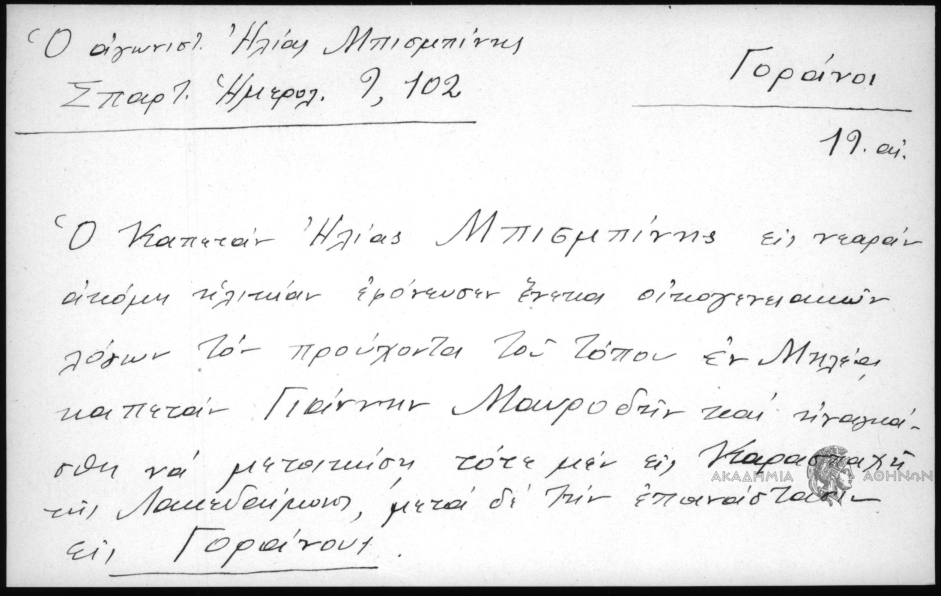 Ὁ ἀγωνιστ. Ἠλίας Μπισμπίνης
Σπαρτ. Ἡμερολ. 9, 102
Γοράνοι
19. αἰ.
Ὁ Καπετάν Ἠλίας Μπισμπίνης εἰς νεαράν
ἀκόμη ἡλικίαν ἐφόνευσεν ἕνεκα οἰκογενειακῶν
λόγων τόν προὔχοντα τοῦ τόπου ἐν Μηλέᾳ
καπετάν Γιάννην Μαυροδῆν καί ἠναγκά-
σθη νά μετοικίσῃ τότε μέν εἰς Καρασπαχῆ
τῆς Λακεδαίμονος, μετά δέ τήν ἐπανάστασιν
εἰς Γοράνους.
ΑΚΑΔΗΜΙΑ ΑΘΗΝΩΝ